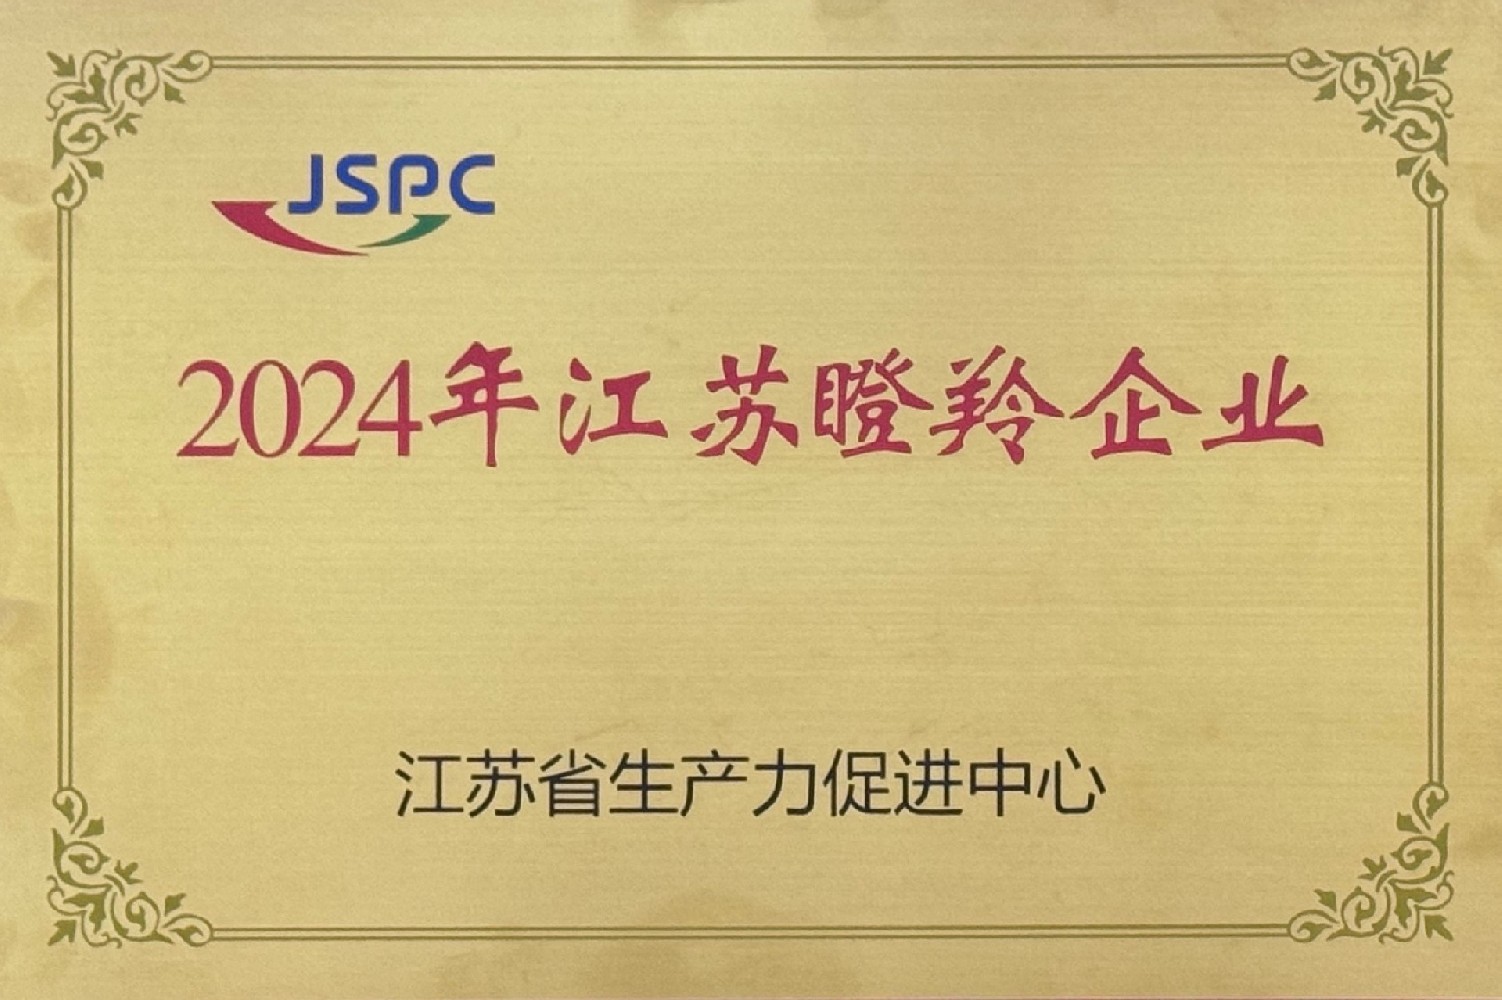 JSPC
2024年江苏瞪羚企业
江苏省生产力促进中心